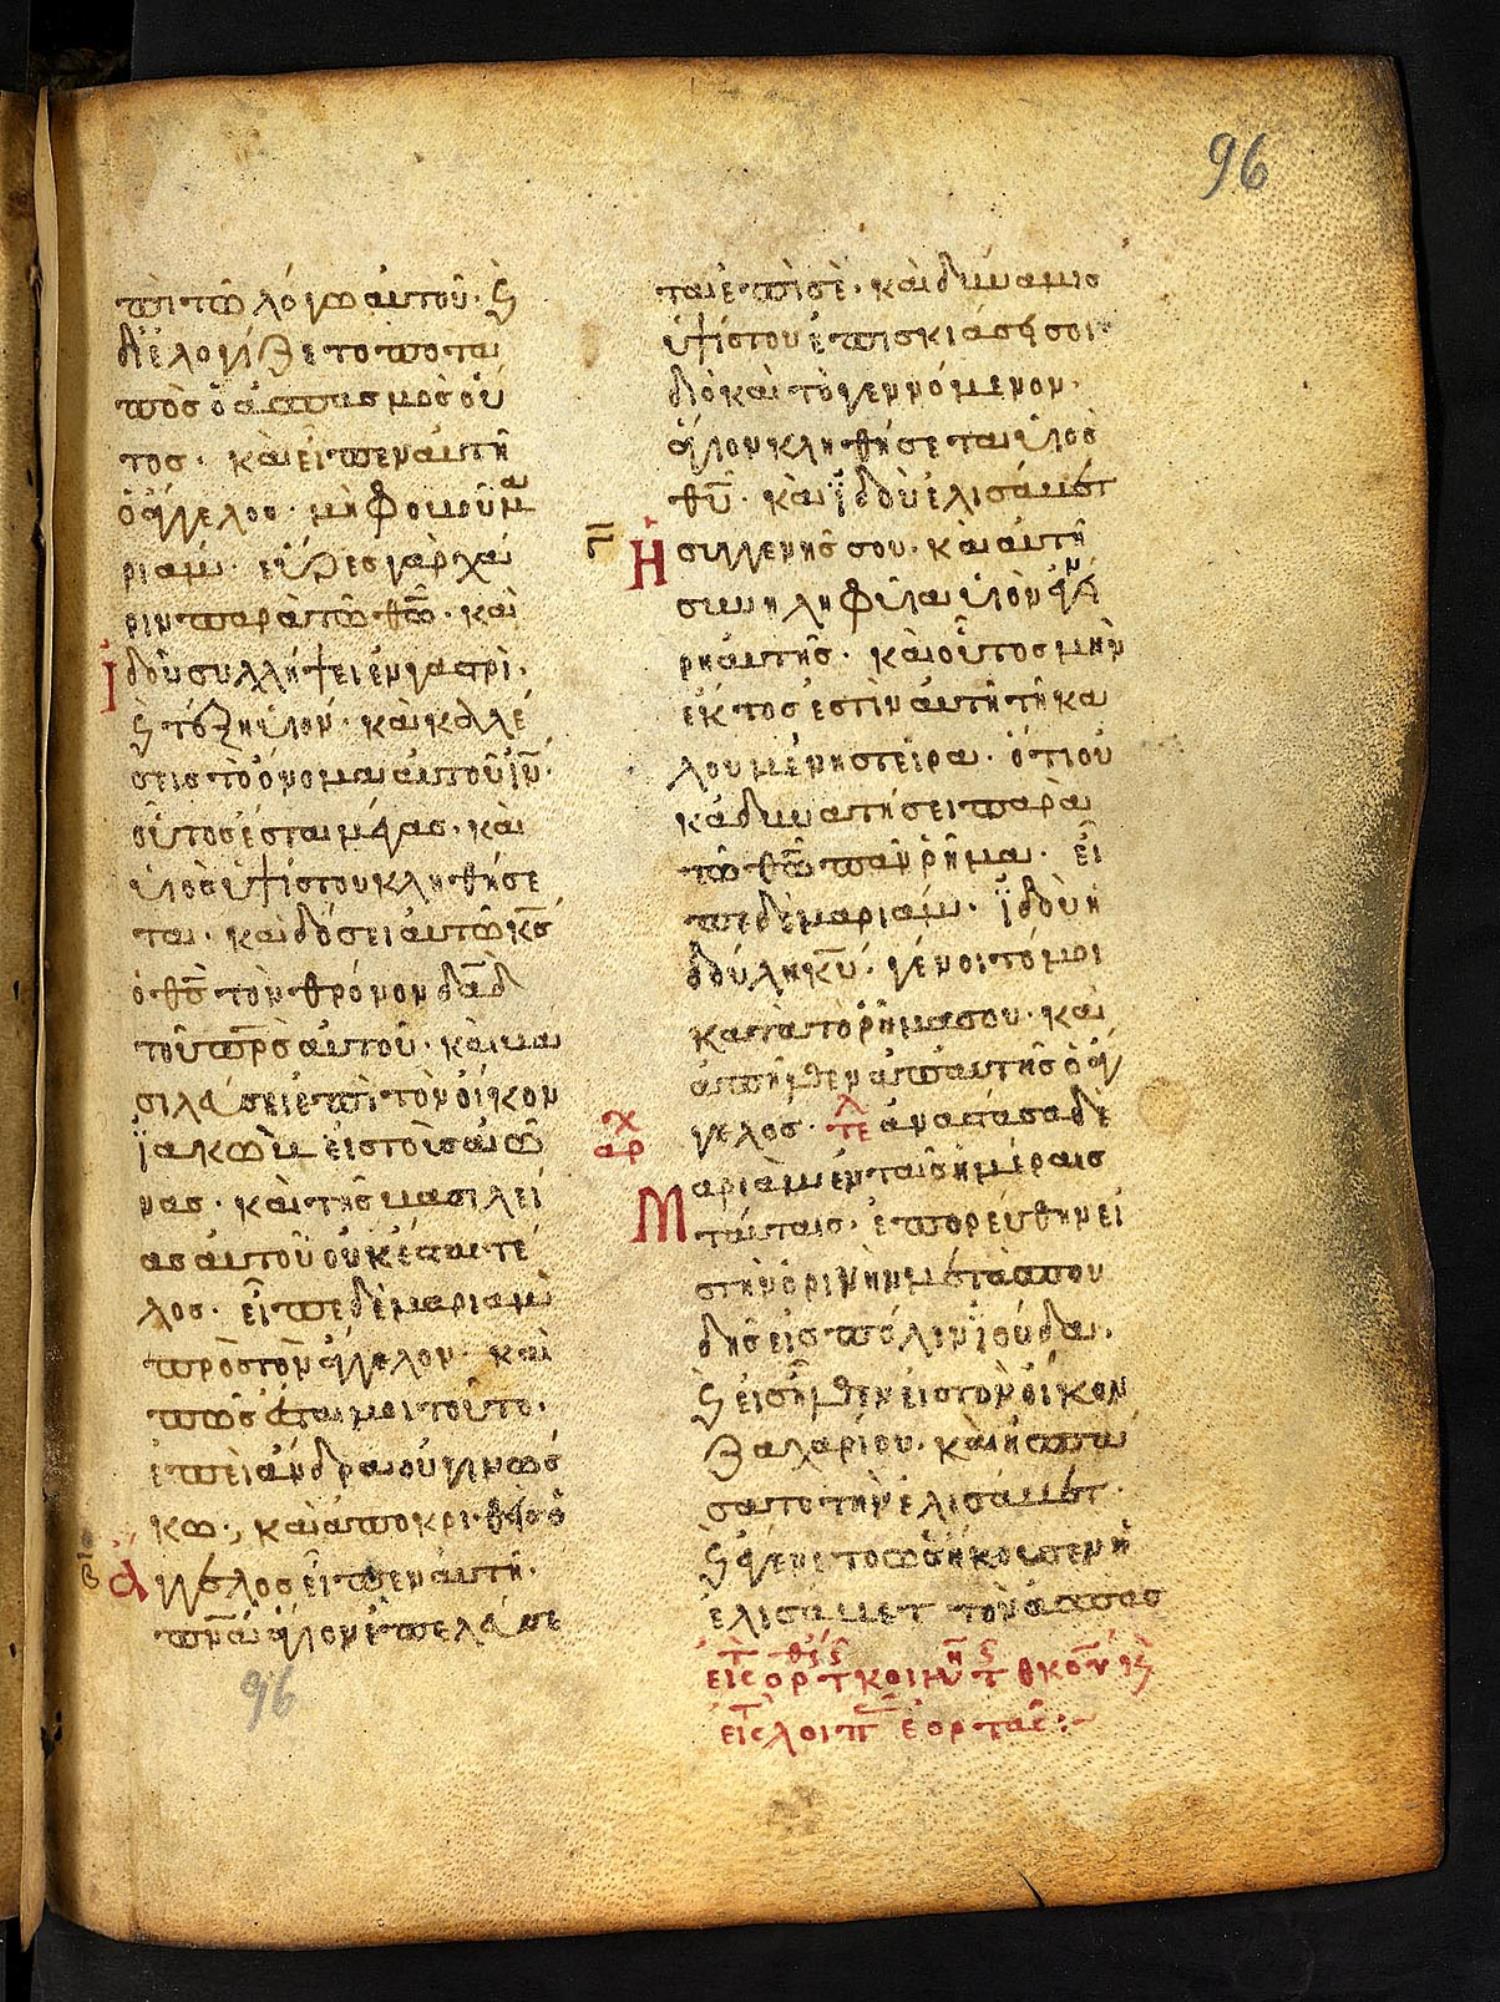 96
πὶ τῶ λόγω αυτοῦ. ϗ
διελογίζετο ποτα
πὸσ ὁ ἀσπασμὸσ οὗ
τοσ. καὶ εἶπεν αυτῆ
ὁ ἄγγελοσ. μὴ φοβοῦ μα
ριαμ. εὗρεσ γὰρ χά
ριν παρὰ τῶ θω. καὶ
ἰδοὺ συλλήψει ἐν γαστρὶ.
ϗ τέξη υἱὸν. καὶ καλέ
σεισ τὸ ὄνομα αυτοῦ ιν.
οὗτοσ ἔσται μέγασ. καὶ
υἱὸσ ὑψίστου κληθήσε
ται. καὶ δώσει αυτῶ κσ
ὁ θσ τὸν θρόνον δαδ
τοῦ πρσ αυτοῦ. καὶ βα
σιλεύσει ἐπὶ τὸν οἶκον
ϊακὼβ εἰσ τοὺσ αἰῶ
νασ. καὶ τῆσ βασιλεί
ασ αυτοῦ οὐκ ἔσται τέ
λοσ. εἶπε δὲ μαριὰμ
πρὸσ τὸν ἄγγελον. καὶ
πῶσ ἔσται μοι τοῦτο.
ἐπεὶ ἄνδρα οὐ γινώσ
κω., καὶ ἀποκριθεὶσ ὁ
β ἄγγελοσ εἶπεν αυτῆ.
πνα ἅγιον ἐπελεύσε
96
ται ἐπὶ σὲ. καὶ δύναμισ
ὑψίστου ἐπισκιάσει σοι.
διὸ καὶ τὸ γεννόμενον.
ἅγιον κληθήσεται υἱὸσ
θυ. καὶ ϊδοὺ ἐλισάβετ
γ Ἡ συγγενῆσ σου. καὶ αυτὴ
συνηληφυῖα υἱὸν ἐν γή
ρη αυτῆσ. καὶ οὗτοσ μὴν
ἕκτοσ ἐστὶν αυτῆ τῆ κα
λουμένη στείρα. ὅτι οὐ
κ ἀδυνατήσει παρὰ
τῶ θω πᾶν ρῆμα. εἶ
πε δὲ μαριάμ. ϊδοὺ ἡ
δούλη κυ. γένοιτό μοι
κατὰ τὸ ρῆμα σου. καὶ
ἀπῆλθεν ἀπ αυτῆσ ὁ ἄγ
αρχ γελοσ. τελ ἀναστᾶσα δὲ
Μαριὰμ ἐν ταῖσ ἡμέραισ
ταύταισ. ἐπορεύθη εἰ
σ τὴν ὀρινὴν μετὰ σπου
δῆσ εἰσ πόλιν ϊούδα.
ϗ εἰσῆλθεν εἰσ τὸν οἶκον
ζαχαρίου. καὶ ἠσπά
σατο τὴν ἐλισάβετ.
ϗ ἐγένετο ὡσ ἤκουσεν ἡ
ἐλισάβετ τὸν ἀσπασ
εἰσ λοιπ ἑορτασ:~